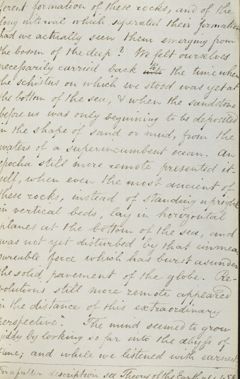 ferent formation of these rocks, and of the
long interval which seperated their formation
had we actually seen them emerging from
the bosom of the deep? We felt ourselves
necessarily carried back to the time when
the schistus on which we stood was yet at
the bottom of the sea, & when the sandstone
before us was only beginning to be deposited
in the shape of sand or mud, from the
waters of a superincumbent ocean. An
epocha still more remote presented it-
self, when even the most ancient of
these rocks, instead of standing upright
in vertical beds, lay in horizontal
planes at the bottom of the sea, and
was not yet disturbed by that immea-
surable force which has burst asunder
the solid pavement of the globe. Re-
volutions still more remote appeared
in the distance of this extraordinary
perspective". The mind seemed to grow
giddy by looking so far into the abyss of
time; and while we listened with earnest
description see Theory of the Earth